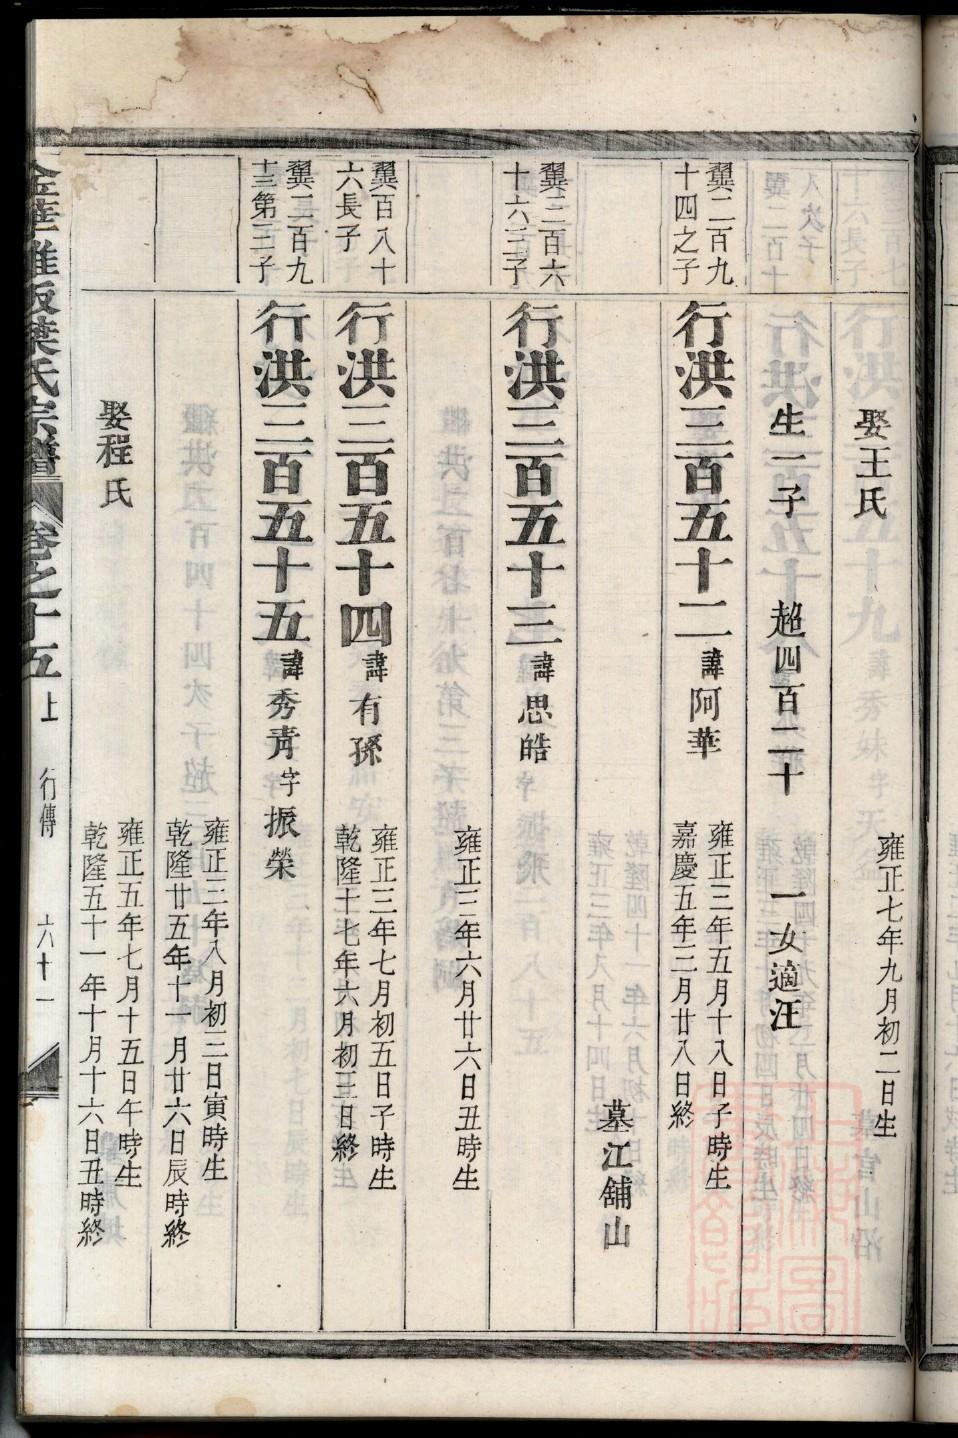 娶王氏
雍正七年九月初二日生
生一子　超四百二十　一女適汪
翼二百九
十四之子
行洪三百五十二諱阿華
雍正三年五月十八日子時生
嘉慶五年三月廿八日終
墓江舖山
翼三百六
十六三子
行洪三百五十三諱思皓
雍正三年六月廿六日丑時生
翼百八十
六長子
行洪三百五十四諱有孫
雍正三年七月初五日子時生
乾隆十七年六月初三日終
翼二百九
十三第三子
行洪三百五十五諱秀青字振榮
雍正三年八月初三日寅時生
乾隆廿五年十一月廿六日辰時終
娶程氏
雍正五年七月十五日午時生
乾隆五十一年十月十六日丑時終
葉氏宗譜　卷之十五　上　行傳　六十一